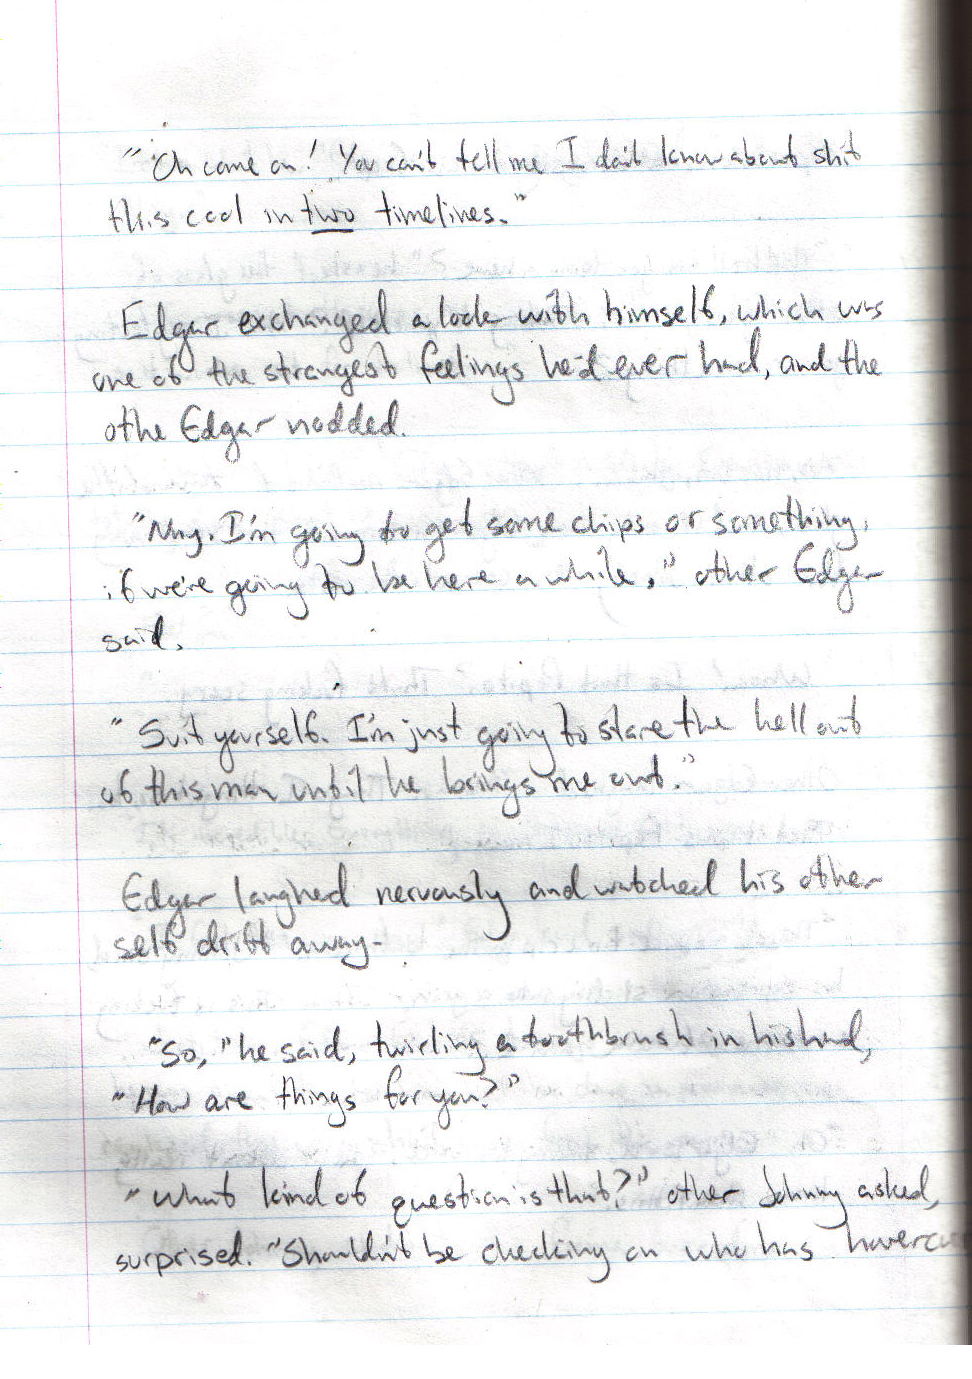 "Oh come on! You can't tell me I don't know about shit
this cool in two timelines."
Edgar exchanged a look with himself, which was
one of the strangest feelings he'd ever had, and the
othe Edgar nodded.
"Nny. I'm going to get some chips or something,
if we're going to be here a while," other Edgar
said.
"Suit yourself. I'm just going to stare the hell out
of this man until he brings me out."
Edgar laughed nervously and watched his other
self drift away.
"So," he said, twirling a toothbrush in his hand,
"How are things for you?"
"What kind of question is that?" other Johnny asked,
surprised. "Shouldn't be checking on who has